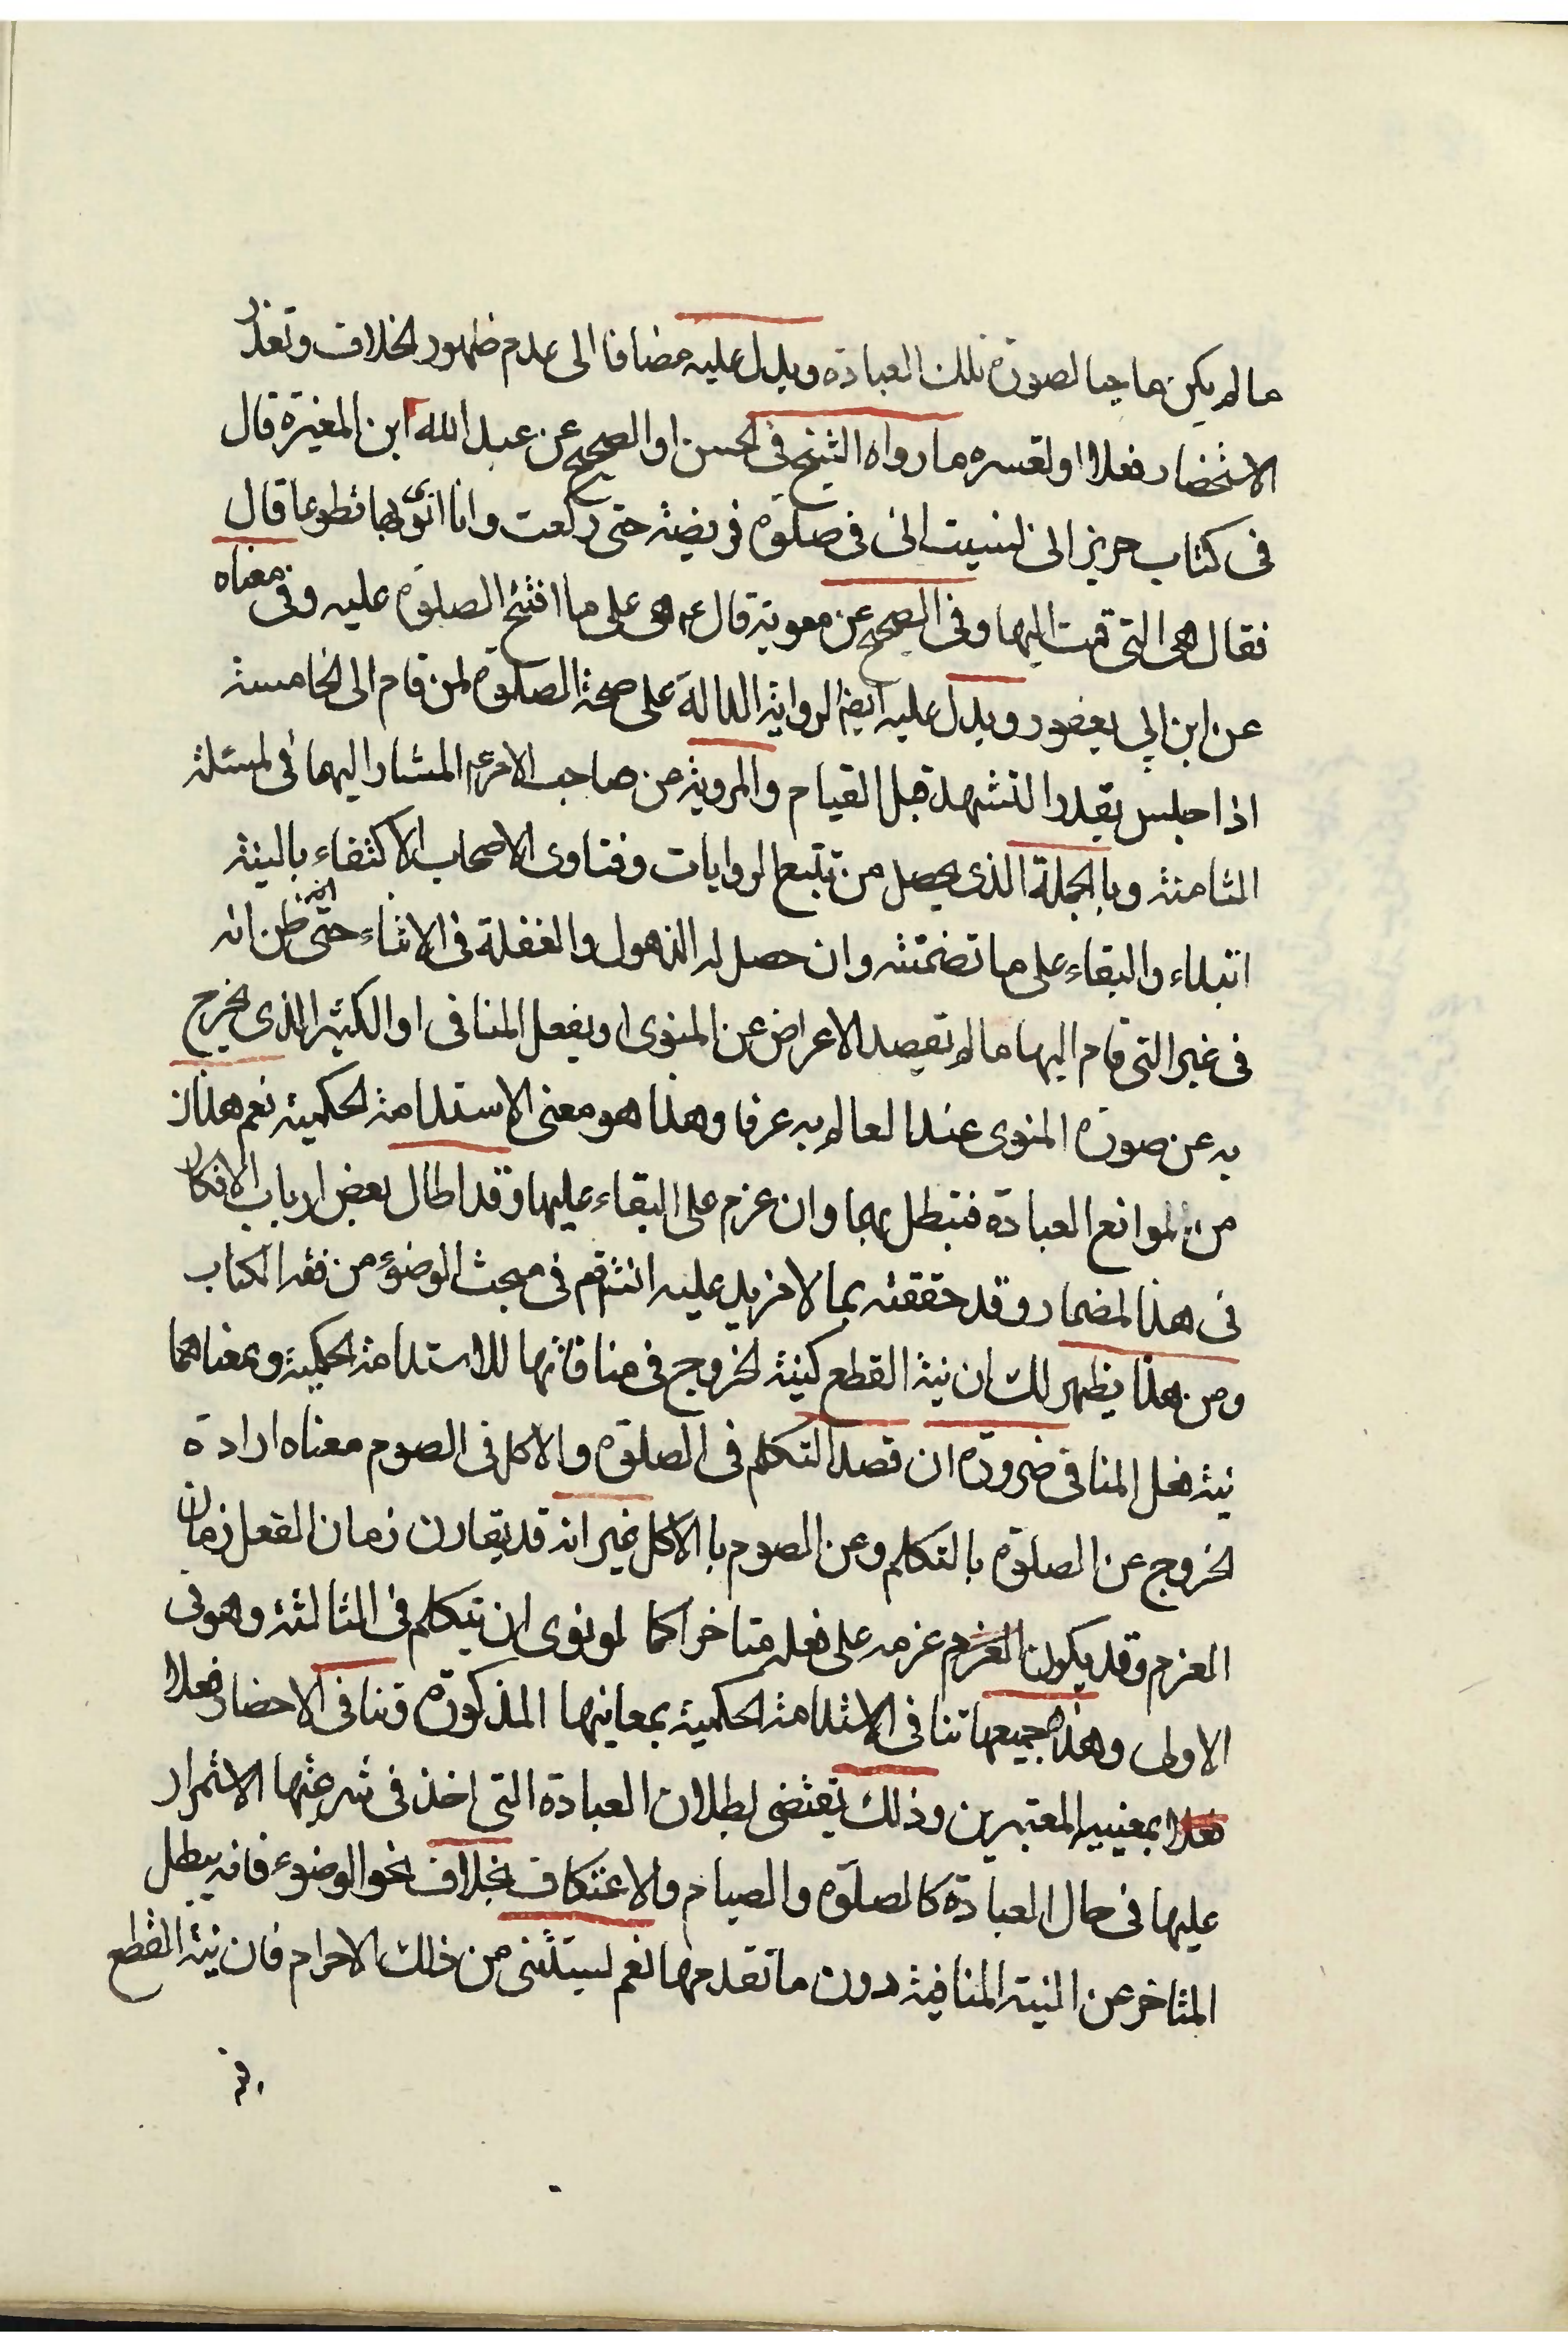 ما لم يكن ماحيا لصورة تلك العبادة ويدل عليه مضافا الى عدم ظهور الخلاف وتعذر
الاستحضار فعلا او لعسره ما رواه الشيخ فى الحسن او الصحيح عن عبد الله ابن المغيرة قال
فى كتاب حريز انى نسيت انى فى صلوة فريضة حتى ركعت وانا انوى بها تطوعا قال
فقال هى التى قمت اليها وفى الصحيح عن معوية قال ع هى على ما افتتح الصلوة عليه وفى معناه
عن ابن ابي يعفور ويدل عليه ايضا الرواية الدالة على صحة الصلوة لمن قام الى الخامسة
اذا جلس بقدر التشهد قبل القيام والمروية من صاحب الامر ع المشار اليهما فى المسئلة
الثامنة وبالجملة الذى يحصل من تتبع الروايات وفتاوى الاصحاب الاكتفاء بالنية
ابتداء والبقاء على ما تضمنته وان حصل له الذهول والغفلة فى الاثناء حتى ظن انه
فى غير التى قام اليها ما لم يقصد الاعراض عن المنوى او يفعل المنافى او الكثير الذى يخرج
به عن صورة المنوى عند العالم به عرفا وهذا هو معنى الاستدامة الحكمية نعم هذان
من الموانع العبادة فتبطل بهما وان عزم على البقاء عليها وقد اطال بعض ارباب الافكار
فى هذا المضمار وقد حققته بما لا مزيد عليه انثرقم فى مبحث الوضوء من فقه الكتاب
ومن هذا يظهر لك ان نية القطع كنية الخروج فى منافاتها للاستدامة الحكمية وبمعناهما
نية فعل المنافى ضرورة ان قصد التكلم فى الصلوة والاكل فى الصوم معناه ارادة
الخروج عن الصلوة بالتكلم وعن الصوم با الاكل غير انه قد يقارن زمان الفعل زمان
العزم وقد يكون العزم عزمه على فعله متاخرا كما لو نوى ان يتكلم فى الثالثة وهو فى
الاولى وهذه جميعها تنافى الاستدامة الحكمية بمعانيها المذكورة وتنافى الاحضار فعلا
فعلا بمعنييه المعتبرين وذلك يقتضى بطلان العبادة التى اخذ فى شرعيتها الاستمرار
عليها فى حال العبادة كالصلوة والصيام والاعتكاف بخلاف نحو الوضوء فانه يبطل
المتاخر عن النية المنافية دون ما تقدمها نعم يستثنى من ذلك الاحرام فان نية القطع